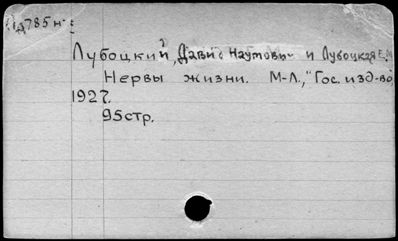 д785 н
Лубоцкий, Давид Наумович и Лубоцкая Е.
Нервы жизни. М-Л., "Гос. изд-во,
1927.
95 стр.